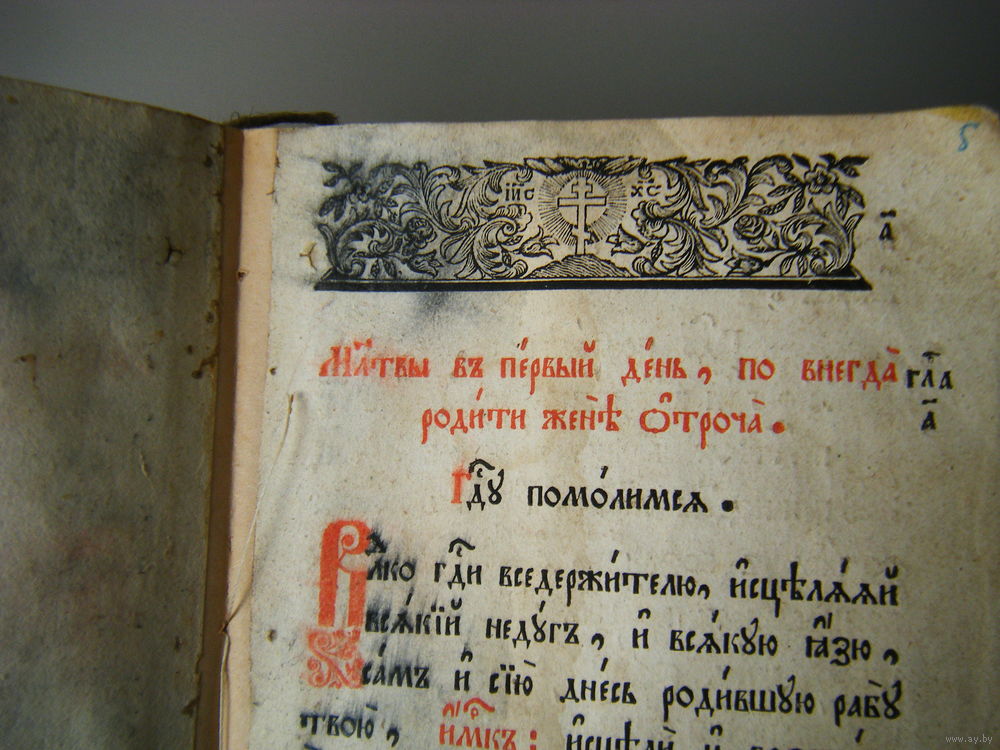 5
І҆И҃С ХС҃
а҃
Мл҃твы въ пе́рвый де́нь, по внегда̀
гла̀
а҃
роди́ти женѣ̀ ѻ҆троча̀.
Гдⷭ҇ꙋ помо́лимсѧ.
Влⷣко гдⷭ҇и вседержи́телю, и҆сцѣлѧ́ѧй
всѧ́кїй недꙋ́гъ, и҆ всѧ́кую ꙗ҆́зю,
са́мъ и҆ сїю̀ дне́сь роди́вшую рабꙋ̀
твою̀, и҆́мⷬ҇къ:
www.ay.by